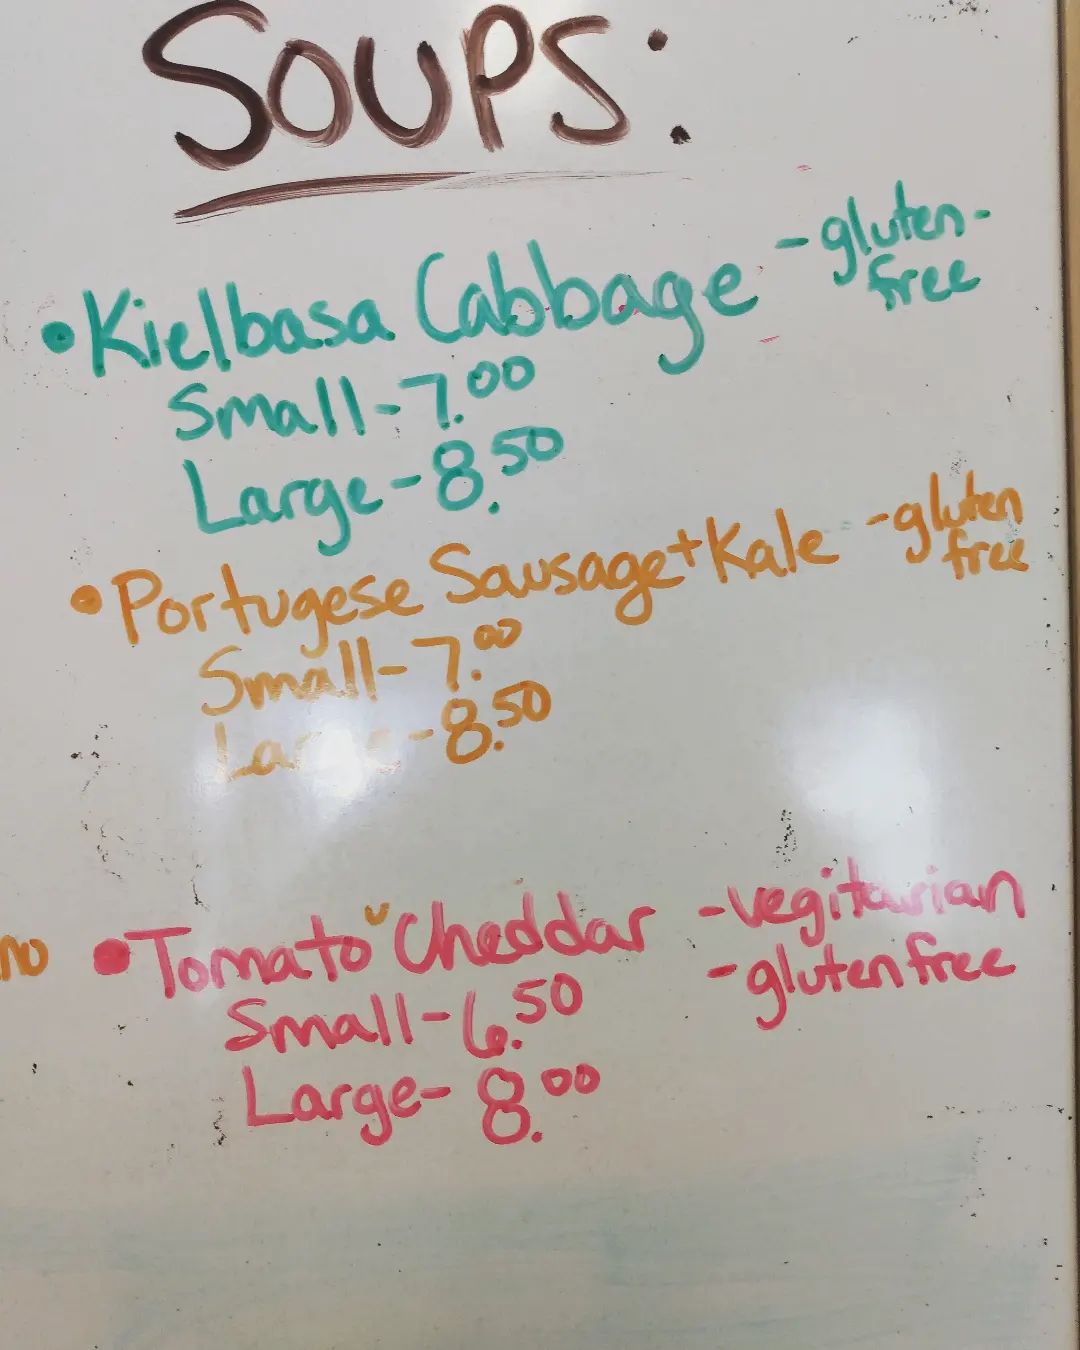 SOUPS:
• Kielbasa Cabbage - gluten-
free
Small - 7.00
Large - 8.50
• Portugese Sausage + Kale - gluten
free
Small - 7.00
Large - 8.50
no
• Tomato Cheddar - vegitarian
- gluten free
Small - 6.50
Large - 8.00